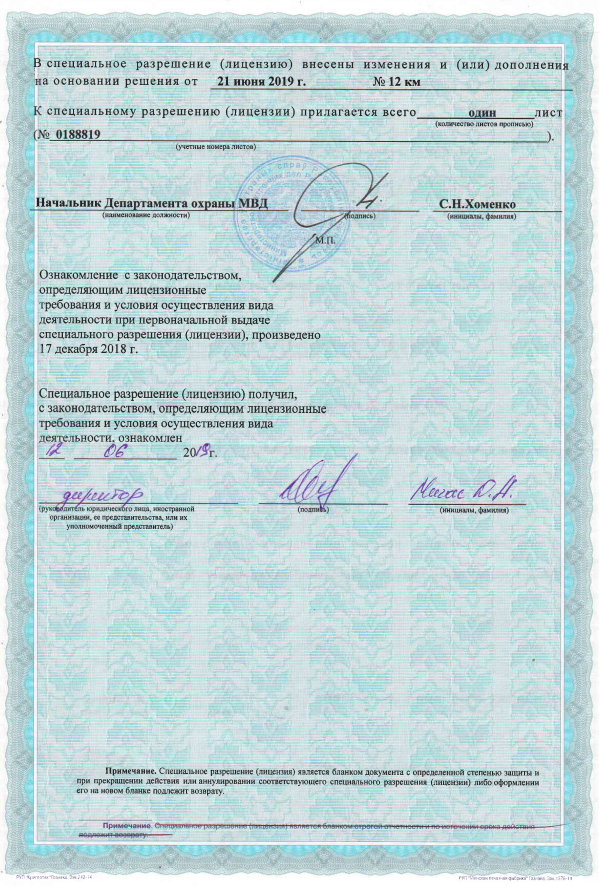 В специальное разрешение (лицензию) внесены изменения и (или) дополнения
на основании решения от 21 июня 2019 г. № 12 км
К специальному разрешению (лицензии) прилагается всего один лист
(количество листов прописью)
(№ 0188819 ).
(учетные номера листов)
Начальник Департамента охраны МВД С.Н.Хоменко
(наименование должности) (подпись) (инициалы, фамилия)
М.П.
Ознакомление с законодательством,
определяющим лицензионные
требования и условия осуществления вида
деятельности при первоначальной выдаче
специального разрешения (лицензии), произведено
17 декабря 2018 г.
Специальное разрешение (лицензию) получил,
с законодательством, определяющим лицензионные
требования и условия осуществления вида
деятельности, ознакомлен
12 06 2019 г.
директор
(руководитель юридического лица, иностранной (подпись) (инициалы, фамилия)
организации, ее представительства, или их
уполномоченный представитель)
Примечание. Специальное разрешение (лицензия) является бланком документа с определенной степенью защиты и
при прекращении действия или аннулировании соответствующего специального разрешения (лицензии) либо оформлении
его на новом бланке подлежит возврату.
Примечание. Специальное разрешение (лицензия) является бланком строгой отчетности и по истечении срока действия
подлежит возврату.